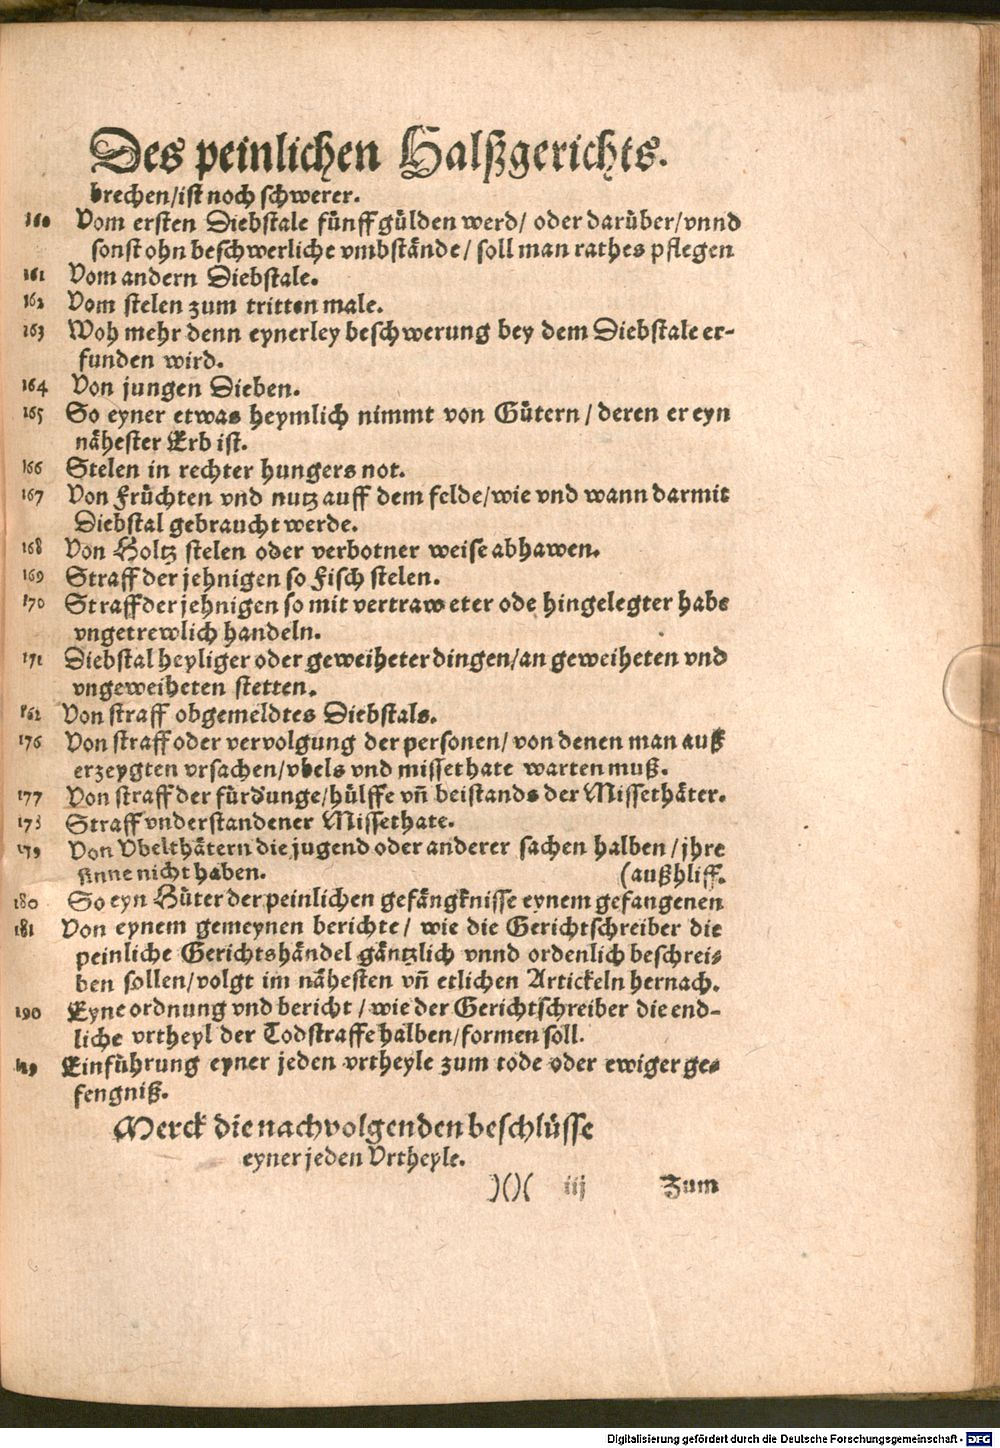 Des peinlichen Halßgerichts.
brechen/ist noch schwerer.
160 Vom ersten Diebstale fünff gülden werd/ oder darüber/vnnd
sonst ohn beschwerliche vmbstände/ soll man rathes pflegen
161 Vom andern Diebstale.
162 Vom stelen zum tritten male.
163 Woh mehr denn eynerley beschwerung bey dem Diebstale er-
funden wird.
164 Von jungen Dieben.
165 So eyner etwas heymlich nimmt von Gütern/ deren er eyn
nähester Erb ist.
166 Stelen in rechter hungers not.
167 Von Früchten vnd nutz auff dem felde/wie vnd wann darmit
Diebstal gebraucht werde.
168 Von Holtz stelen oder verbotner weise abhawen.
169 Straff der jehnigen so Fisch stelen.
170 Straff der jehnigen so mit vertraweter ode hingelegter habe
vngetrewlich handeln.
171 Diebstal heyliger oder geweiheter dingen/an geweiheten vnd
vngeweiheten stetten.
162 Von straff obgemeldtes Diebstals.
176 Von straff oder vervolgung der personen/ von denen man auß
erzeygten vrsachen/vbels vnd missethate warten muß.
177 Von straff der fürdunge/hülffe vñ beistands der Missethäter.
178 Straff vnderstandener Missethate.
179 Von Vbelthätern die jugend oder anderer sachen halben /jhre
sinne nicht haben. (außhliff.
180 So eyn Hüter der peinlichen gefängknisse eynem gefangenen
181 Von eynem gemeynen berichte/ wie die Gerichtschreiber die
peinliche Gerichtshändel gäntzlich vnnd ordenlich beschrei-
ben sollen/volgt im nähesten vñ etlichen Artickeln hernach.
190 Eyne ordnung vnd bericht /wie der Gerichtschreiber die end-
liche vrtheyl der Todstraffe halben/formen soll.
Einführung eyner jeden vrtheyle zum tode oder ewiger ge-
fengniß.
Merck die nachvolgenden beschlüsse
eyner jeden Vrtheyle.
)()( iij Zum
Digitalisierung gefördert durch die Deutsche Forschungsgemeinschaft - DFG